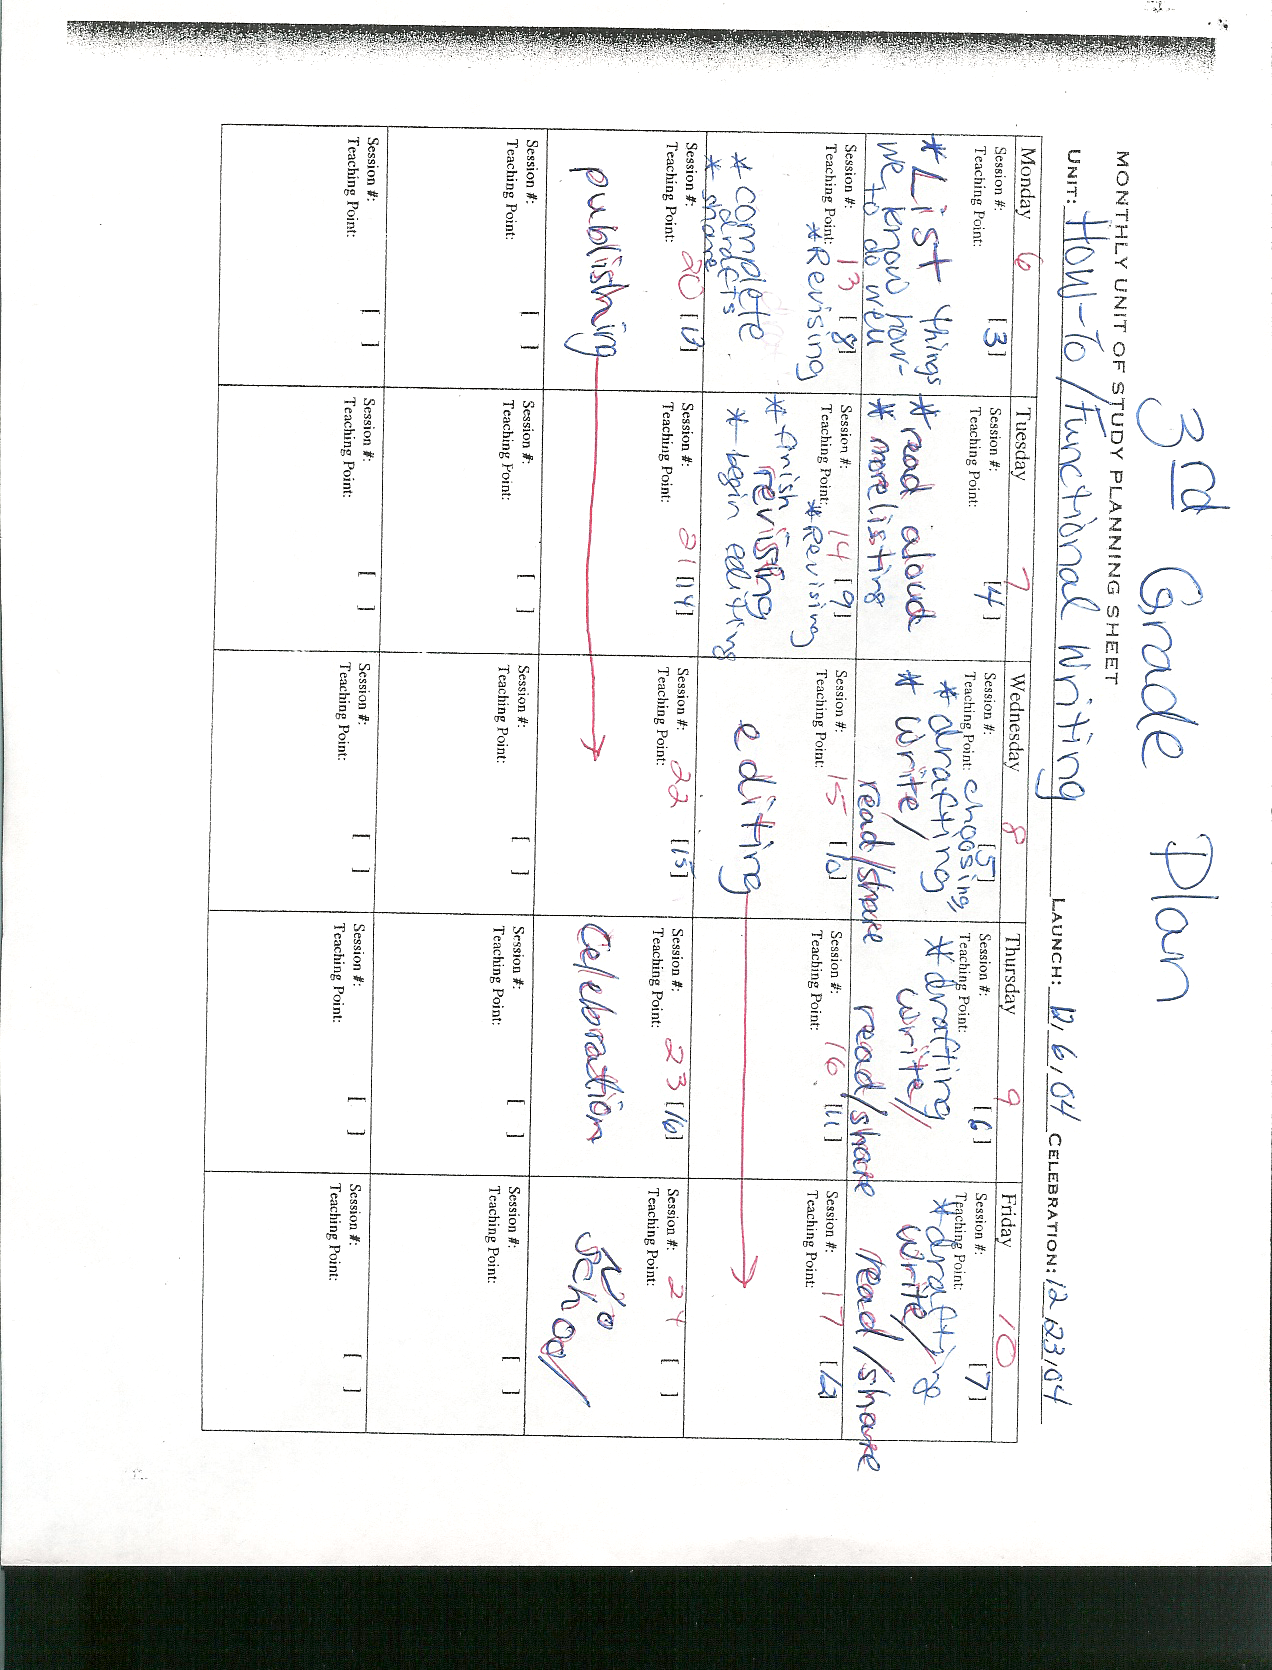 3rd Grade Plan
MONTHLY UNIT OF STUDY PLANNING SHEET
UNIT: How-To/Functional Writing LAUNCH: 12/6/04 CELEBRATION: 12/23/04
Monday 6
Session #: [3]
Teaching Point:
* List things
we know how
to do well
Tuesday 7
Session #: [4]
Teaching Point:
* read aloud
* more listing
Wednesday 8
Session #: [5]
Teaching Point: choosing
* drafting
* write/
read/share
Thursday 9
Session #: [6]
Teaching Point:
* drafting
write/
read/share
Friday 10
Session #: [7]
Teaching Point:
* drafting
write/
read/share
Session #: 13 [8]
Teaching Point:
* Revising
* complete
drafts
* share
Session #: 14 [9]
Teaching Point:
* Revising
* finish
revising
* begin editing
Session #: 15 [10]
Teaching Point:
editing
Session #: 16 [11]
Teaching Point:
Session #: 17 [12]
Teaching Point:
Session #: 20 [13]
Teaching Point:
publishing
Session #: 21 [14]
Teaching Point:
Session #: 22 [15]
Teaching Point:
Session #: 23 [16]
Teaching Point:
Celebration
Session #: 24 [ ]
Teaching Point:
No
School
Session #: [ ]
Teaching Point:
Session #: [ ]
Teaching Point:
Session #: [ ]
Teaching Point:
Session #: [ ]
Teaching Point:
Session #: [ ]
Teaching Point:
Session #: [ ]
Teaching Point:
Session #: [ ]
Teaching Point:
Session #: [ ]
Teaching Point:
Session #: [ ]
Teaching Point:
Session #: [ ]
Teaching Point: